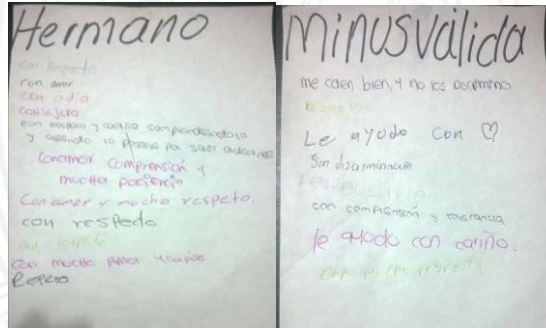 Hermano
con Respeto
con amor
con odio
consejero
con respeto y cariño comprendiendolo
y
Conamor comprensión y
mucha paciencia
Con amor y mucho respeto.
con respedo
con respeto
con mucho Amor y cariño
Minusválida
me caen bien, y no los discrimino
Le ayodo con ♡
Sin discriminación
con comprensión y tolerancia
le ayudo con cariño.
con mucho respeto